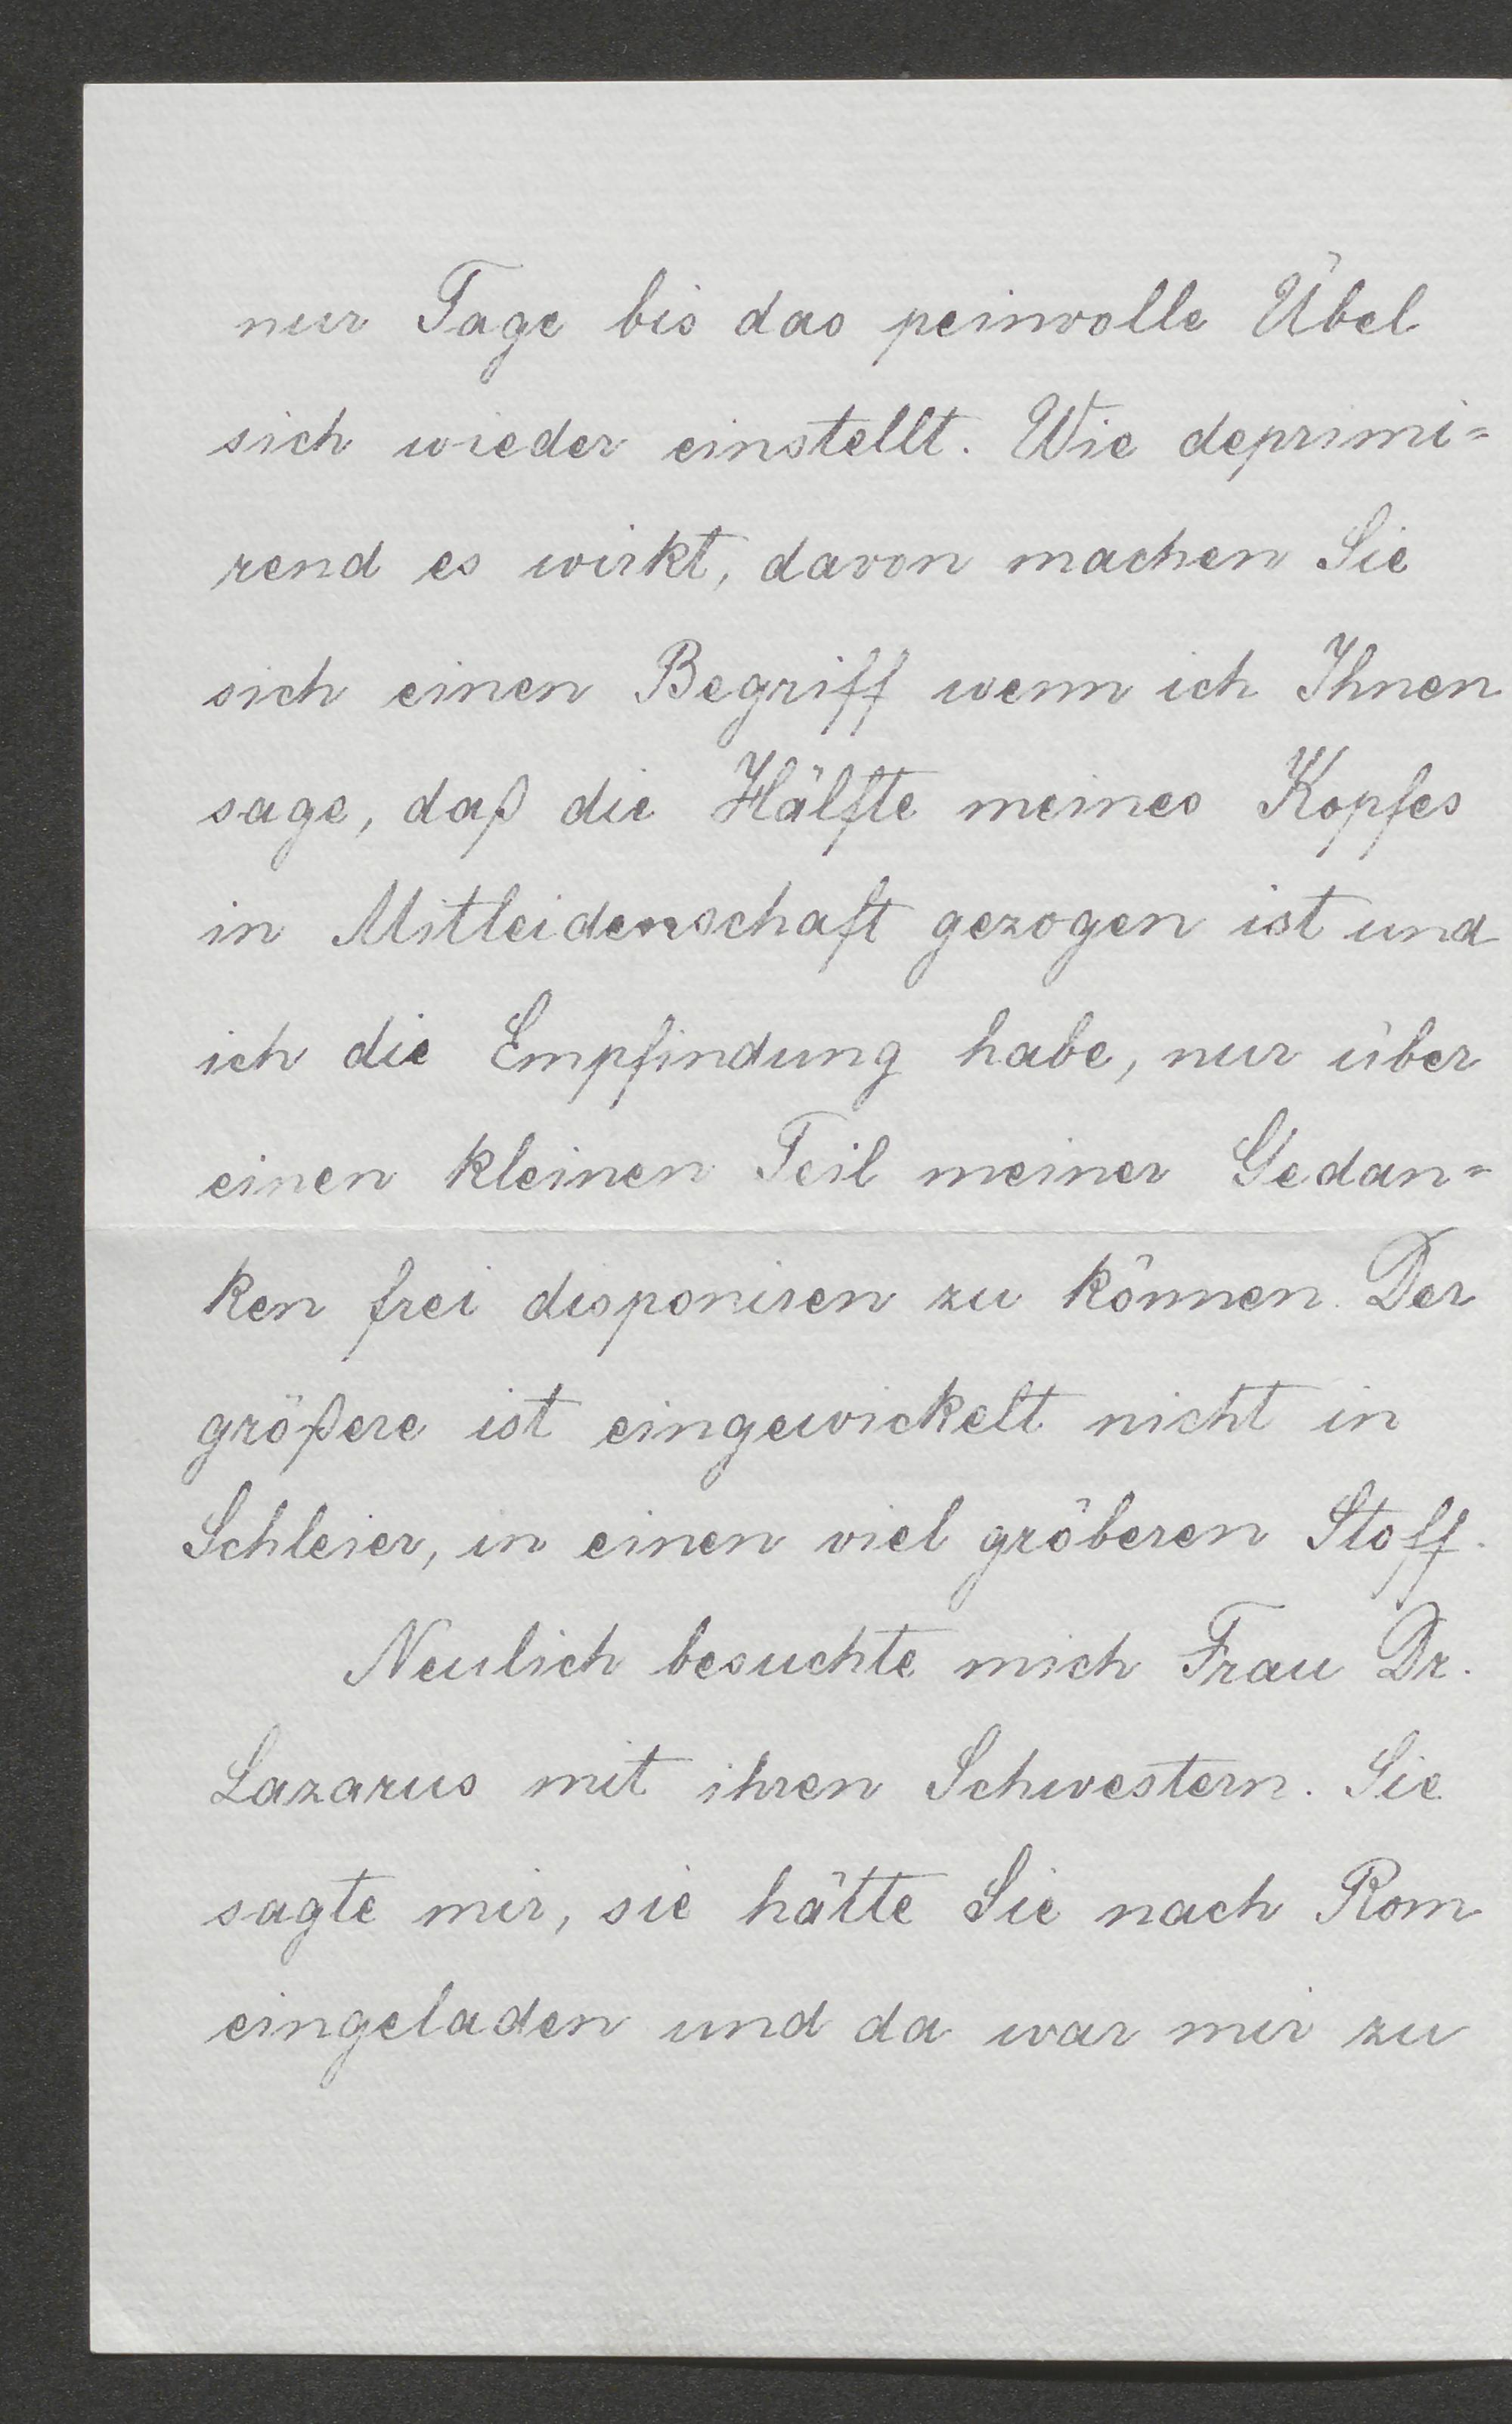 nur Tage bis das peinvolle Übel
sich wieder einstellt. Wie deprimi=
rend es wirkt, davon machen Sie
sich einen Begriff wenn ich Ihnen
sage, daß die Hälfte meines Kopfes
in Mitleidenschaft gezogen ist und
ich die Empfindung habe, nur über
einen kleinen Teil meiner Gedan=
ken frei disponiren zu können. Der
größere ist eingewickelt nicht in
Schleier, in einen viel gröberen Stoff.
Neulich besuchte mich Frau Dr.
Lazarus mit ihren Schwestern. Sie
sagte mir, sie hätte Sie nach Rom
eingeladen und da war mir zu